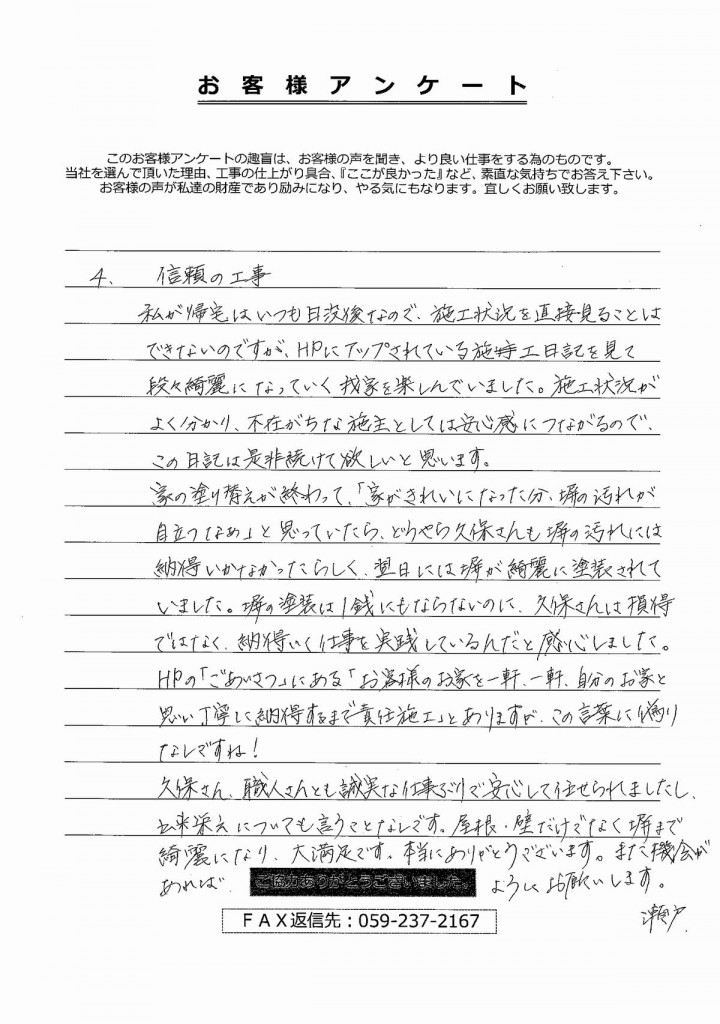 お客様アンケート
このお客様アンケートの趣盲は、お客様の声を聞き、より良い仕事をする為のものです。
当社を選んで頂いた理由、工事の仕上がり具合、『ここが良かった』など、素直な気持ちでお答え下さい。
お客様の声が私達の財産であり励みになり、やる気にもなります。宜しくお願い致します。
4. 信頼の工事
私が帰宅はいつも日没後なので、施工状況を直接見ることは
できないのですが、HPにアップされている施工日記を見て
段々綺麗になっていく我家を楽しんでいました。施工状況が
よく分かり、不在がちな施主としては安心感につながるので、
この日記は是非続けて欲しいと思います。
家の塗り替えが終わって、「家がきれいになった分、塀の汚れが
目立つなぁ」と思っていたら、どうやら久保さんも塀の汚れには
納得いかなかったらしく、翌日には塀が綺麗に塗装されて
いました。塀の塗装は1銭にもならないのに、久保さんは損得
ではなく、納得いく仕事を実践しているんだと感心しました。
HPの「ごあいさつ」にある「お客様のお家を一軒、一軒、自分のお家と
思い丁寧に納得するまで責任施工」とありますが、この言葉に偽り
なしですね!
久保さん、職人さんとも誠実な仕事ぶりで安心して任せられましたし、
出来栄えについても言うことなしです。屋根・壁だけでなく塀まで
綺麗になり、大満足です。本当にありがとうございます。また機会が
あれば、 ようにお願いします。
ご協力ありがとうございました。
瀬戸
FAX返信先:059-237-2167